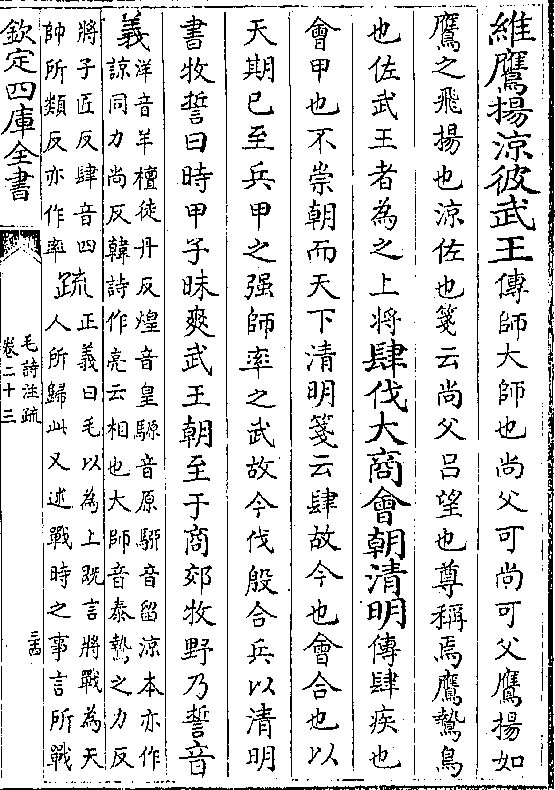 維鷹揚涼彼武王傳師大師也尚父可尚可父鷹揚如
鷹之飛揚也涼佐也箋云尚父吕望也尊稱焉鷹鷙鳥
也佐武王者為之上將肆伐大商會朝清明傳肆疾也
會甲也不崇朝而天下清明箋云肆故今也會合也以
天期已至兵甲之强師率之武故今伐殷合兵以清明
書牧誓曰時甲子昧爽武王朝至于商郊牧野乃誓音
義洋音羊檀徒丹反煌音皇騵音原駵音留涼本亦作
諒同力尚反韓詩作亮云相也大師音泰鷙之力反
將子匠反肆音四
帥所類反亦作率
疏正義曰毛以為上既言將戰為天
人所歸此又述戰時之事言所戰
欽定四庫全書
毛詩注疏
卷二十三
三四